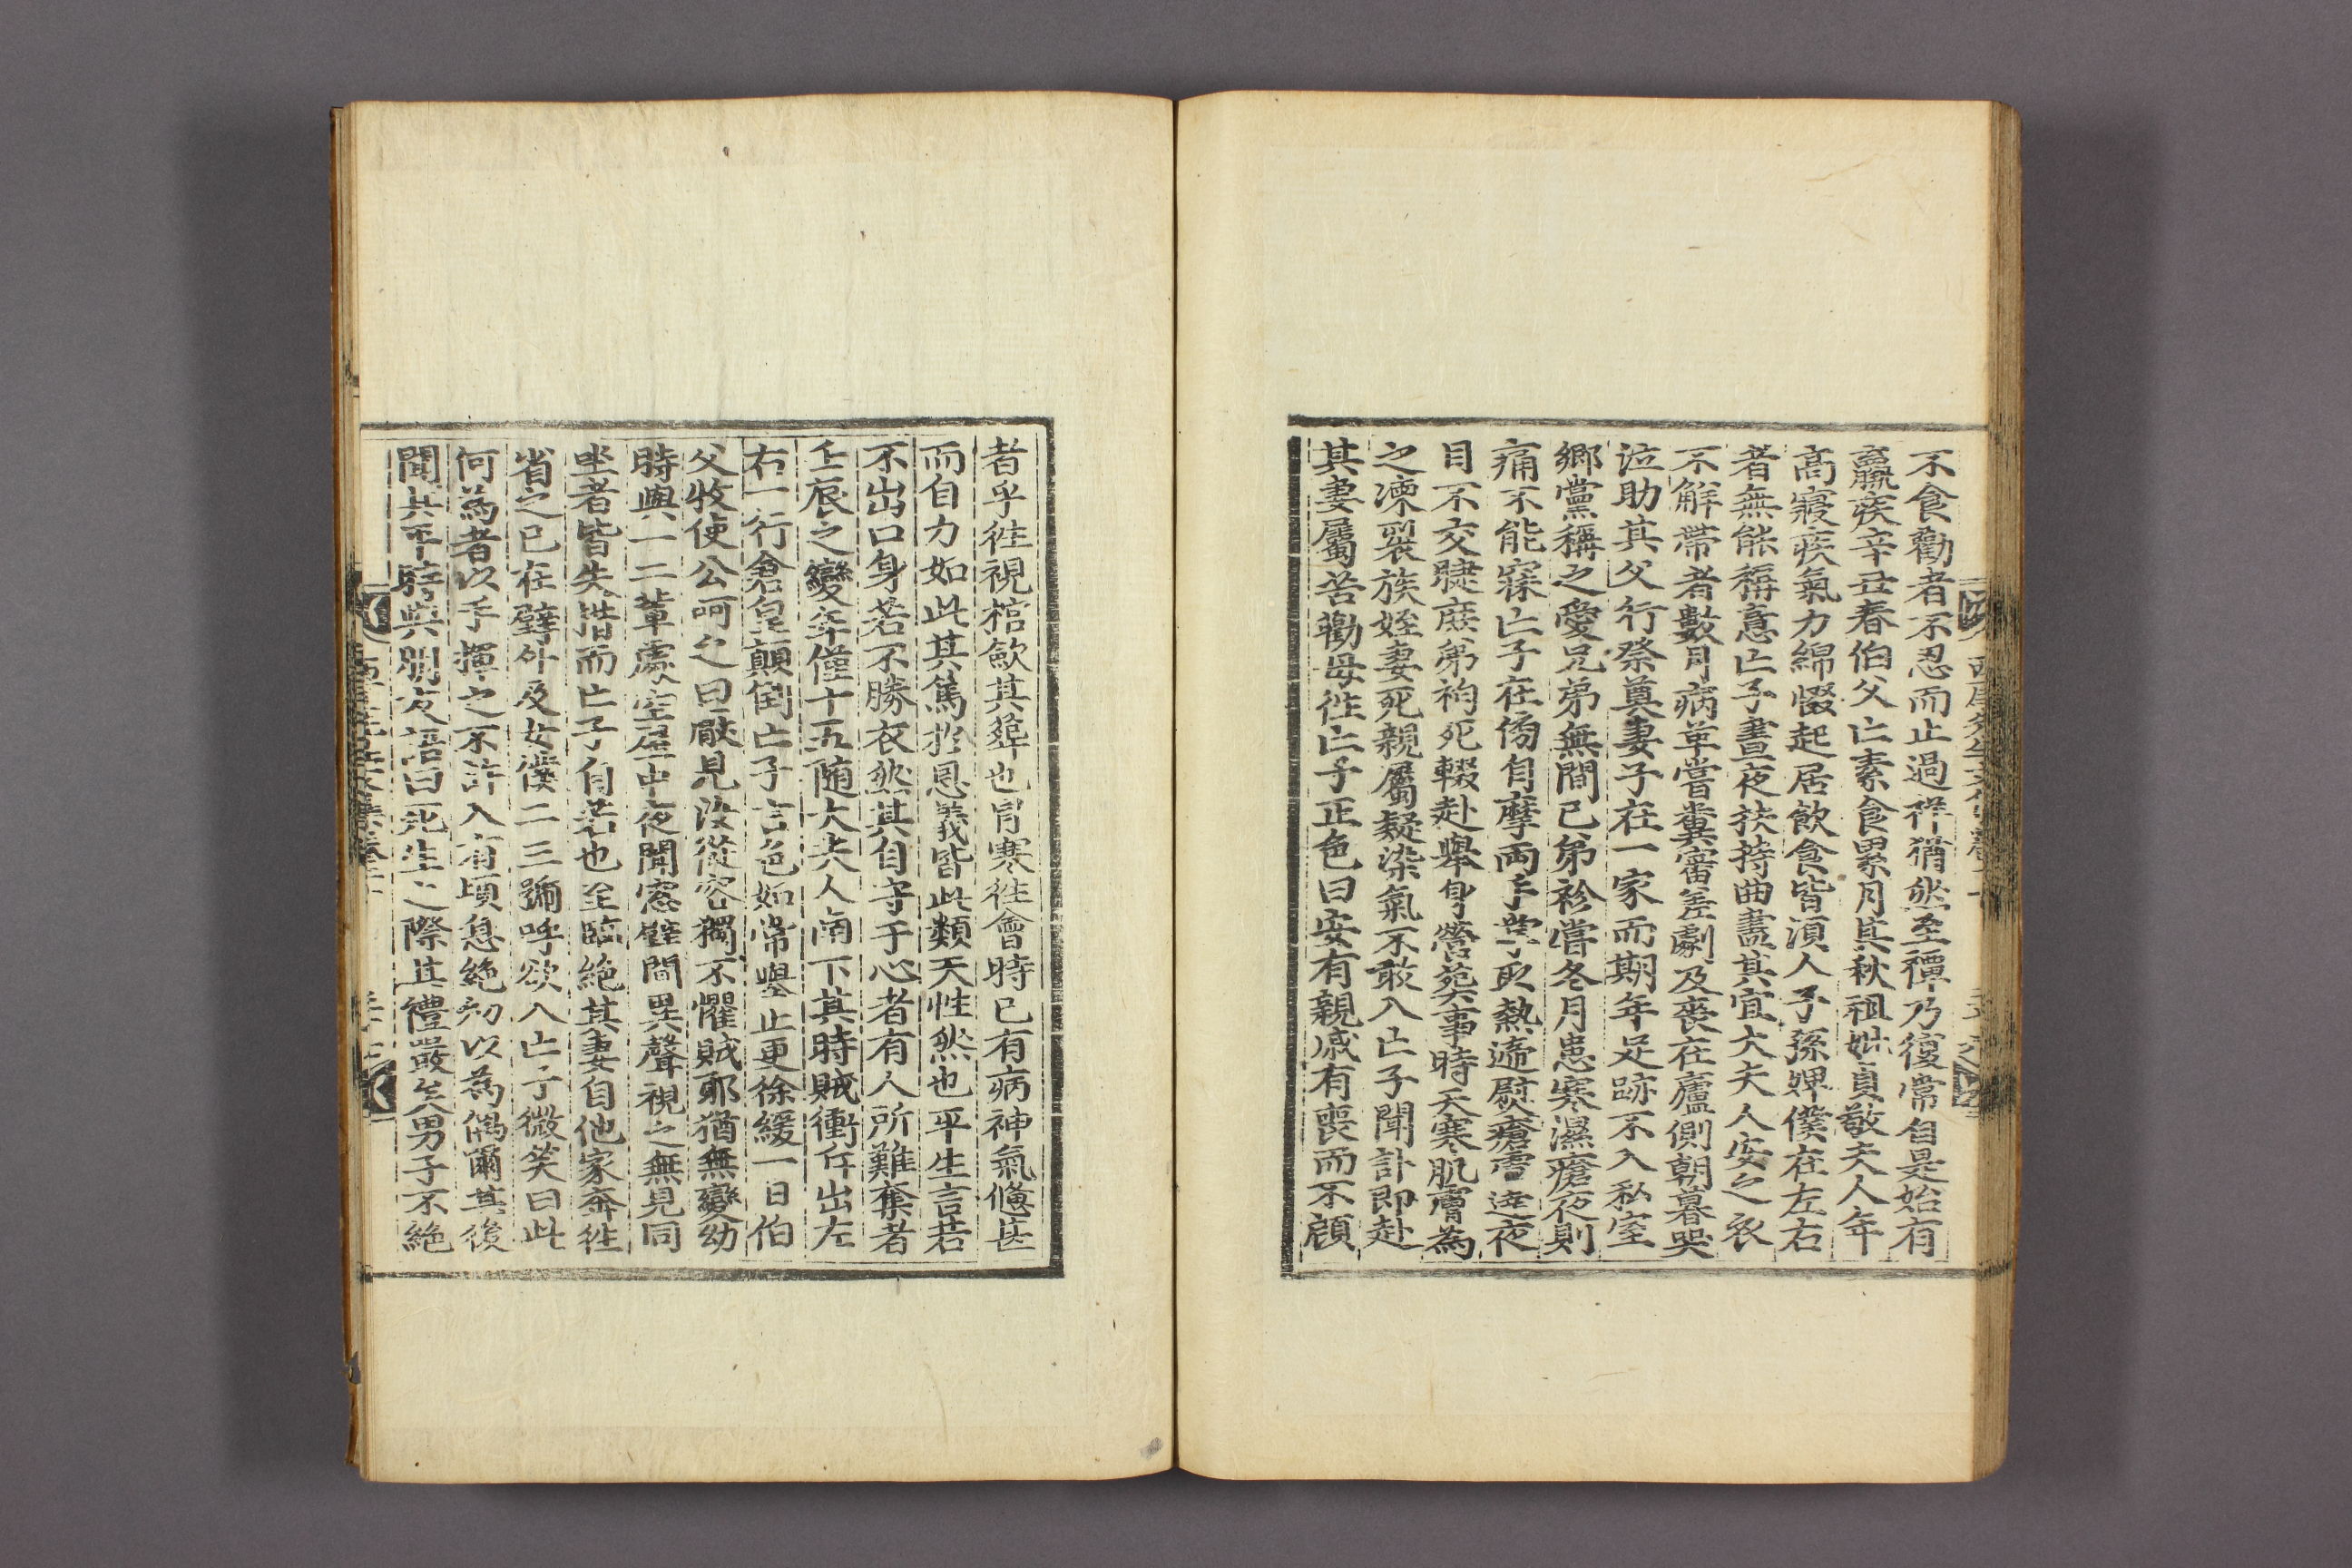 不食勸者不忍而止過祥猶然至禫乃復常自是始有
羸疾辛丑春伯父亡素食累月其秋祖妣貞敬夫人年
高寢疾氣力綿惙起居飮食皆湏人子孫婢僕在左右
者無能稱意亡子晝夜扶持曲盡其宜大夫人安之衣
不解帶者數月病革嘗糞審差劇及喪在廬側朝暮哭
泣助其父行祭奠妻子在一家而期年足跡不入私室
鄕黨稱之愛兄弟無間已弟袗嘗冬月患寒濕瘡夜則
痛不能寐亡子在傍自摩兩手取熱遞熨瘡處達夜
目不交睫庶弟袀死輟赴舉身營葬事時天寒肌膚爲
之凍裂族姪妻死親屬疑染氣不敢入亡子聞訃卽赴
其妻屬苦勸毋徃亡子正色曰安有親戚有喪而不顧
者乎徃視棺歛其葬也冐寒徃會時已有病神氣憊甚
而自力如此其篤於恩義皆此類天性然也平生言若
不出口身若不勝衣然其自守于心者有人所難奪者
壬辰之變年僅十五随大夫人南下其時賊衝斥出左
右一行倉皇顚倒亡子言色如常擧止更徐緩一日伯
父牧使公呵之曰厥見沒從容獨不懼賊耶猶無變幼
時與一二輩處空屋中夜聞窓壁間異聲視之無見同
坐者皆失措而亡子自若也至臨絶其妻自他家奔徃
省之已在壁外及女僕二三號呼欲入亡子微笑曰此
何爲者以手揮之不許入有頃息絶初以爲偶爾其後
聞其平時與朋友語曰死生之際其禮嚴矣男子不絶